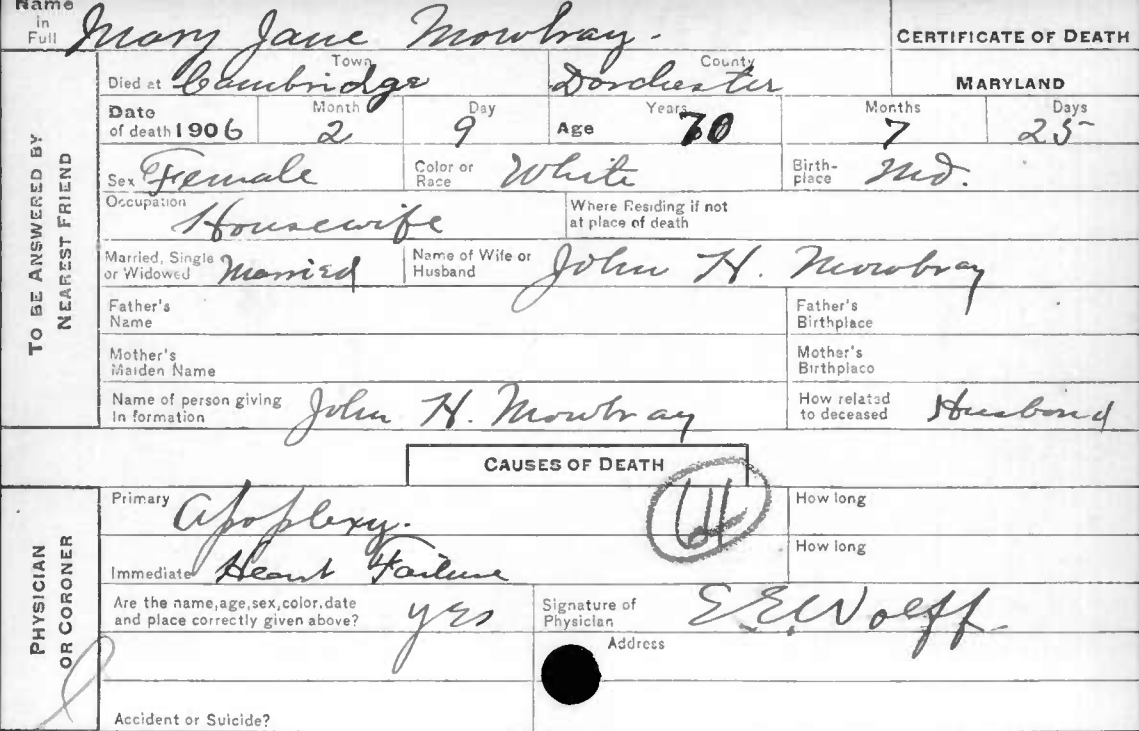 Name in Full Mary Jane Mowbray. CERTIFICATE OF DEATH
Died at Town Cambridge County Dorchester MARYLAND
Date of death 1906 Month 2 Day 9 Age Years 70 Months 7 Days 25
Sex Female Color or Race White Birth-place Md.
Occupation Housewife Where Residing if not at place of death
Married, Single or Widowed Married Name of Wife or Husband John H. Mowbray
Father's Name Father's Birthplace
Mother's Maiden Name Mother's Birthplace
Name of person giving In formation John H. Mowbray How related to deceased Husband
TO BE ANSWERED BY NEAREST FRIEND
CAUSES OF DEATH
Primary Apoplexy. 64 How long
Immediate Heart Failure How long
Are the name, age, sex, color, date and place correctly given above? yes Signature of Physician E.E. Wolff.
Address
Accident or Suicide?
PHYSICIAN OR CORONER